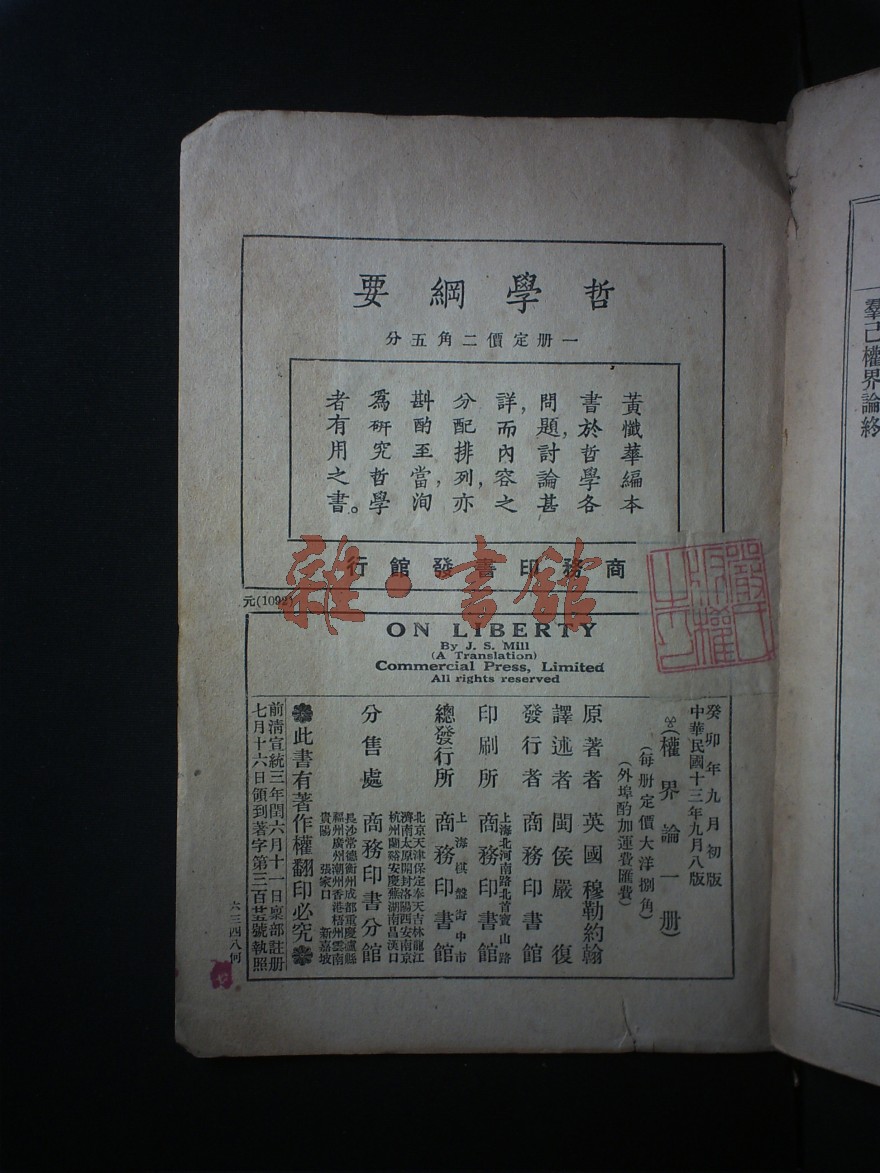 哲學綱要
一册定價二角五分
黃懺華編本
書於哲學各
問題,討論甚
詳,而內容之
分配排列,亦
斟酌至當,洵
爲研究哲學
者有用之書。
商務印書館發行
元(1092)
雜·書館
ON LIBERTY
By J. S. Mill
(A Translation)
Commercial Press, Limited
All rights reserved
癸卯年九月初版
中華民國十三年九月八版
(權界論一册)
(每册定價大洋捌角)
(外埠酌加運費匯費)
原著者 英國穆勒約翰
譯述者 閩侯嚴復
發行者 商務印書館
印刷所 上海北河南路北首寶山路 商務印書館
總發行所 上海棋盤街中市 商務印書館
分售處 商務印書分館
北京天津保定奉天吉林龍江
濟南太原開封洛陽西安南京
杭州蘭谿安慶蕪湖南昌漢口
長沙常德衡州成都重慶瀘縣
福州廣州潮州香港梧州雲南
貴陽 張家口 新嘉坡
此書有著作權翻印必究
前清宣統三年閏六月十一日稟部註册
七月十六日領到著字第三百號執照
六三四八何
羣己權界論終